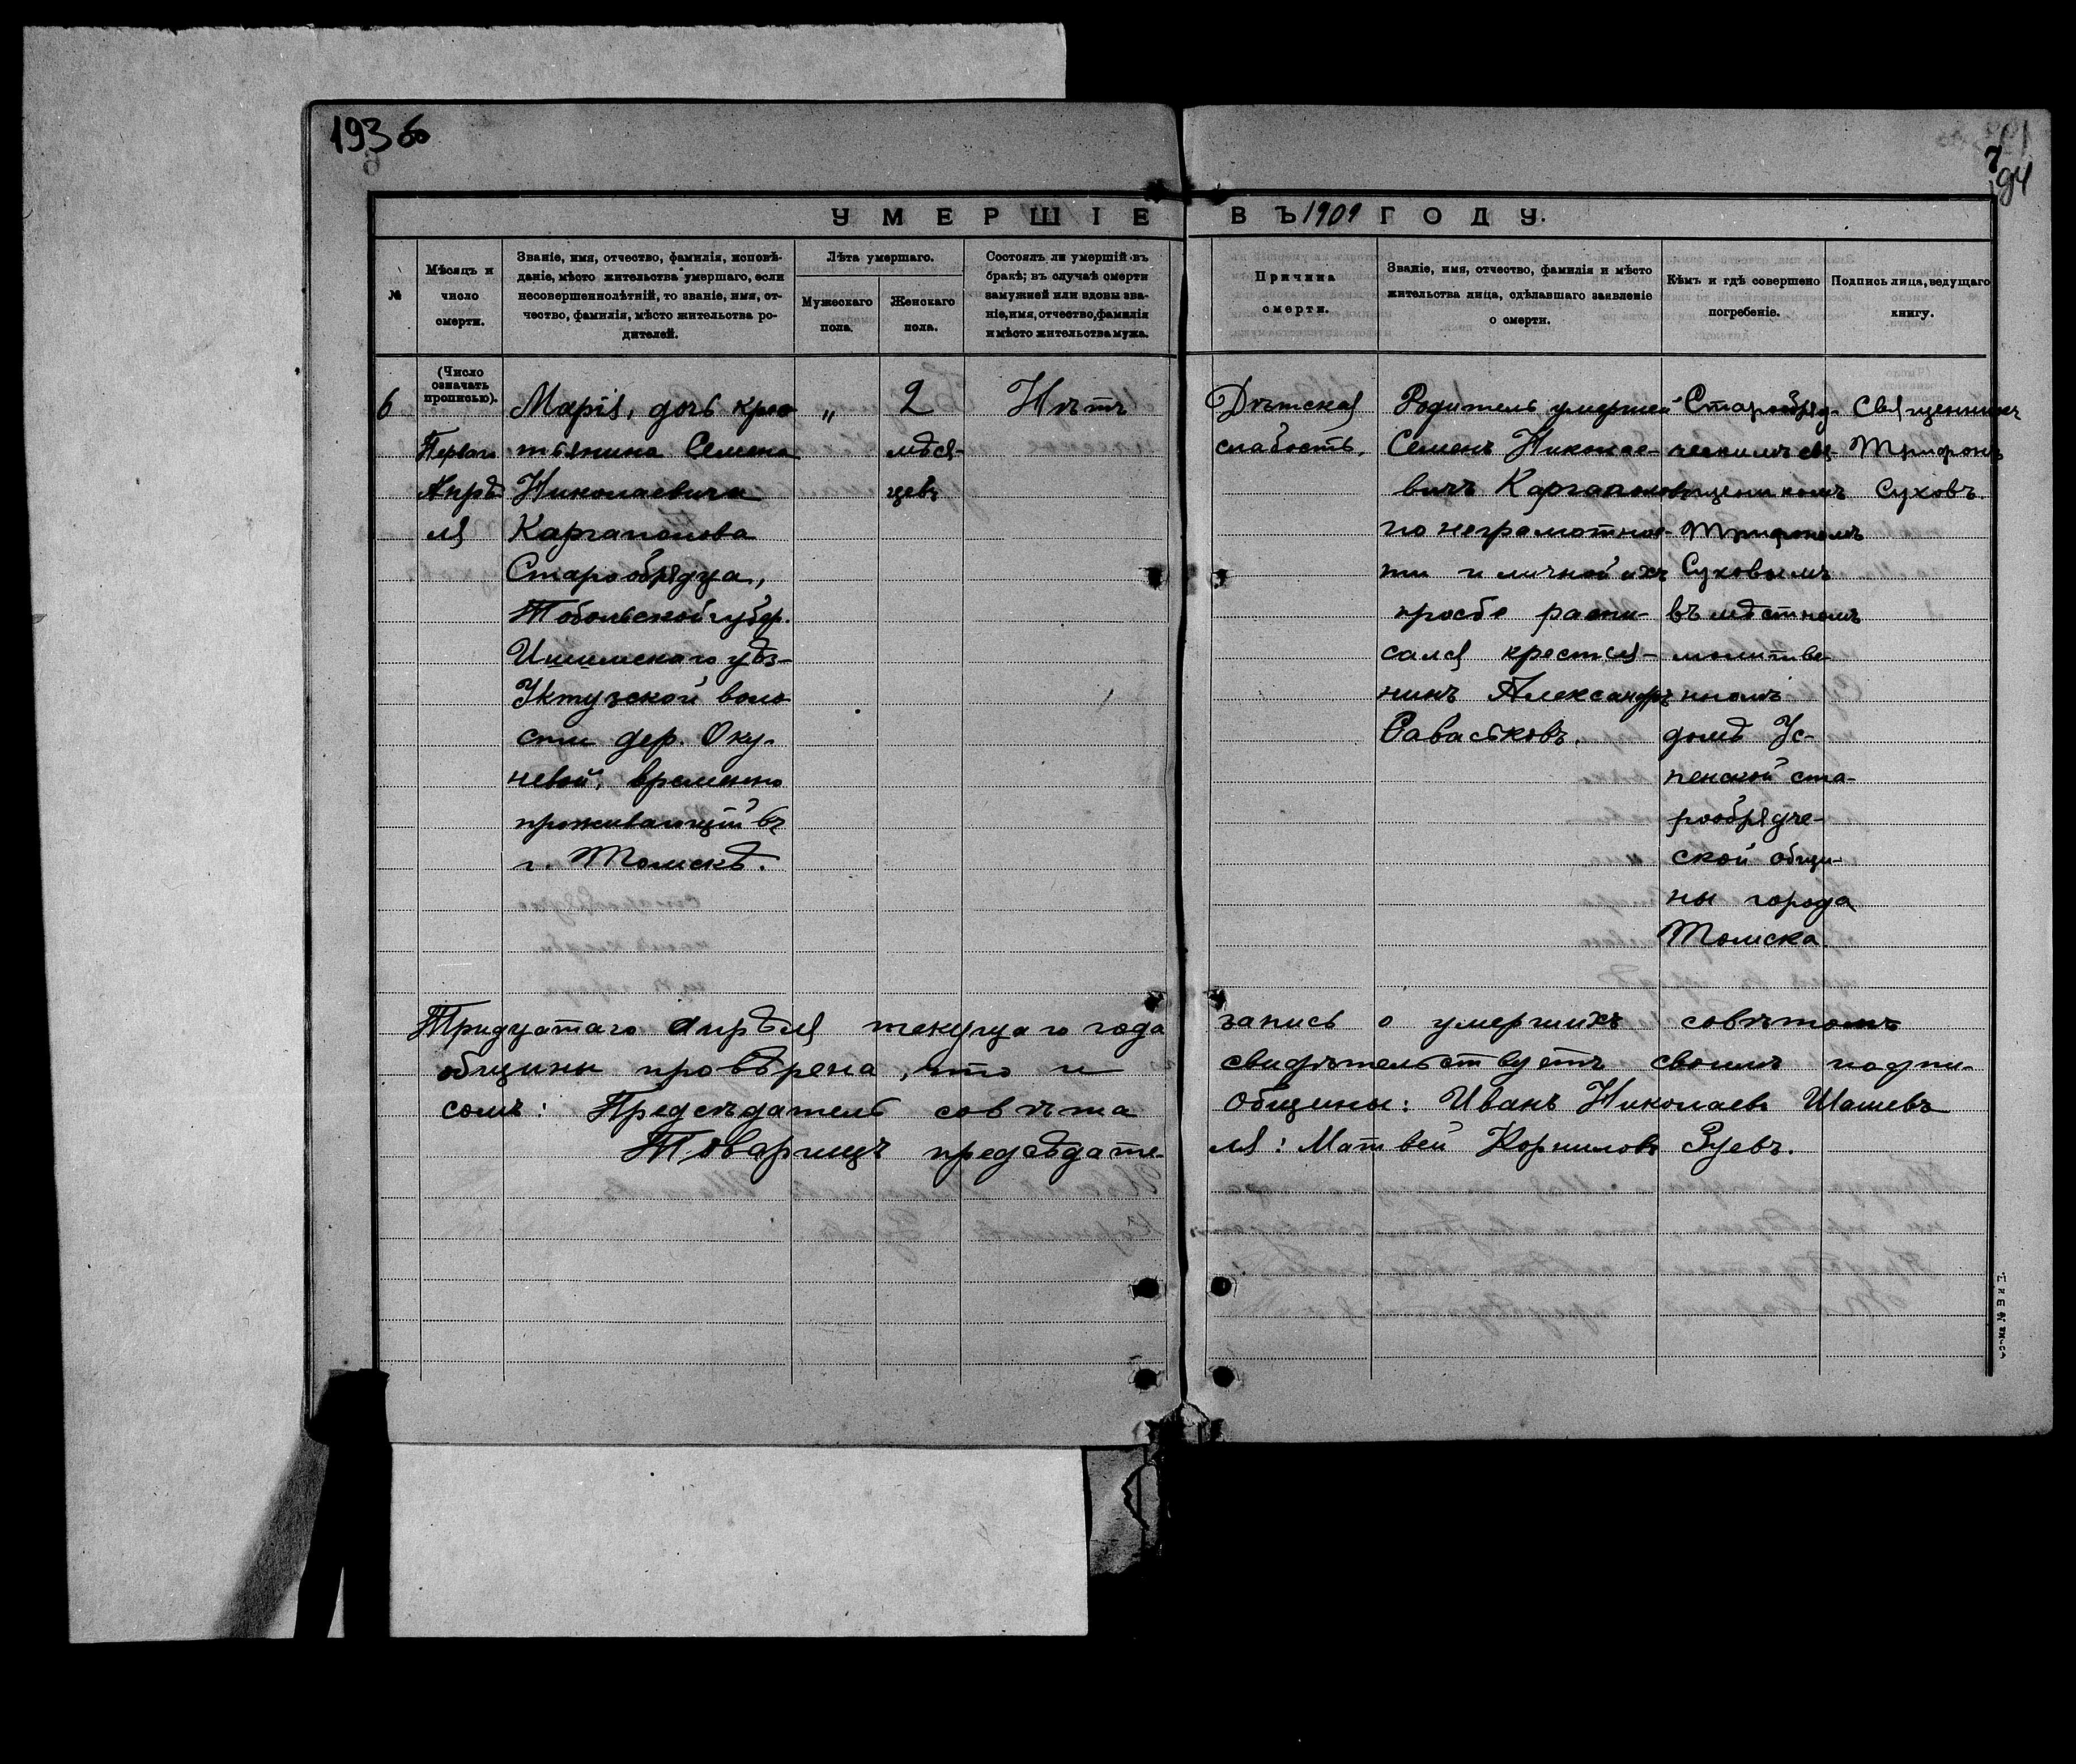 193 об
7
194
УМЕРШІЕ ВЪ 1909 ГОДУ.
№
Мѣсяцъ и
число
смерти.
Званіе, имя, отчество, фамилія, исповѣ-
даніе, мѣсто жительства умершаго, если
несовершеннолѣтній, то званіе, имя, от-
чество, фамилія, мѣсто жительства ро-
дителей.
Лѣта умершаго.
Мужескаго
пола.
Женскаго
пола.
Состоялъ ли умершій въ
бракѣ; въ случаѣ смерти
замужней или вдовы зва-
ніе, имя, отчество, фамилія
и мѣсто жительства мужа.
Причина
смерти.
Званіе, имя, отчество, фамилія и мѣсто
жительства лица, сдѣлавшаго заявленіе
о смерти.
Кѣмъ и гдѣ совершено
погребеніе.
Подпись лица, ведущаго
книгу.
(Число
означать
прописью).
6
Перваго
Апрѣ-
ля
Марія, дочь крес-
тьянина Семена
Николаевича
Каргаполова
Старообрядца,
Тобольской губер.
Ишимского уѣз-
Уктузской воло
сти дер. Оку-
невой, временно
проживающій въ
г. Томскѣ.
„
2
мѣся-
цевъ
Нѣтъ
Дѣтская
слабость,
Родитель умершей
Семенъ Николае-
вичъ Каргаполовъ
по неграмотнос-
ти и личной ихъ
просбе распи-
сался крестья-
нинъ Александръ
Саваськовъ.
Старообряд-
ческимъ свя-
щенникомъ
Трифономъ
Суховымъ
въ мѣстномъ
молитве-
нномъ
домѣ Ус-
пенской ста-
рообрядче-
ской общи-
ны города
Томска.
Священникъ
Трифонъ
Суховъ.
Тридцатаго апрѣля текущаго года запись о умершихъ совѣтомъ
общины провѣрена, что и свидѣтельствуетъ своимъ подпи-
сомъ: Предсѣдатель совѣта Общины: Иванъ Николаевъ Шашевъ
Товарищъ предсѣдате- ля: Матвей Корниловъ Зуевъ.